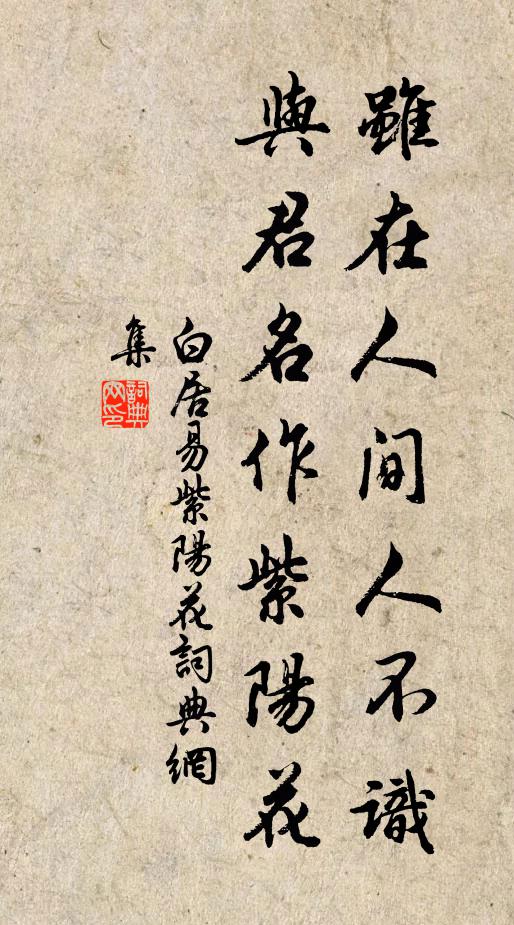 雖在人間人不識
與君名作紫陽花
白居易紫陽花詞典網
集
詞典
網印